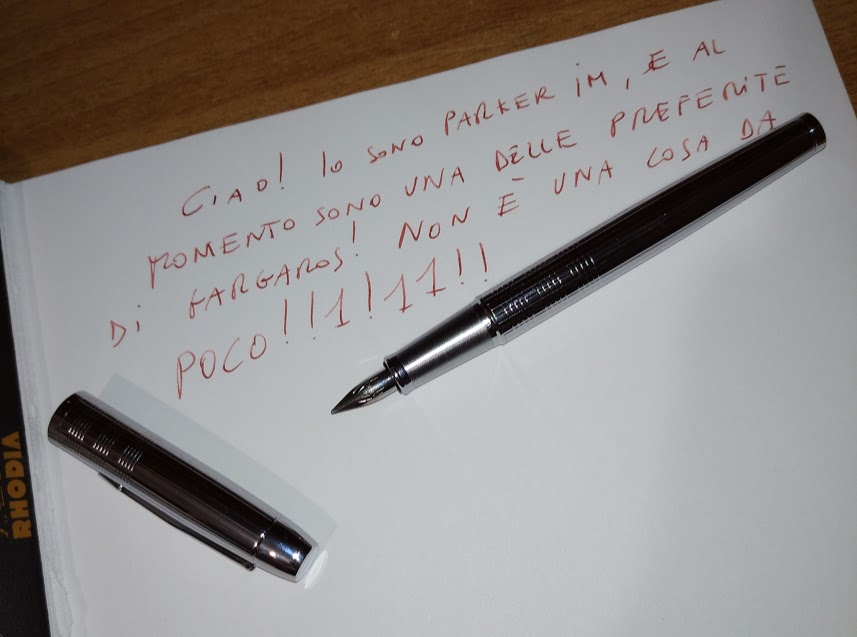 CIAO! IO SONO PARKER IM, E AL
MOMENTO SONO UNA DELLE PREFERITE
DI FARGAROS! NON È UNA COSA DA
POCO!!1!11!!
RHODIA